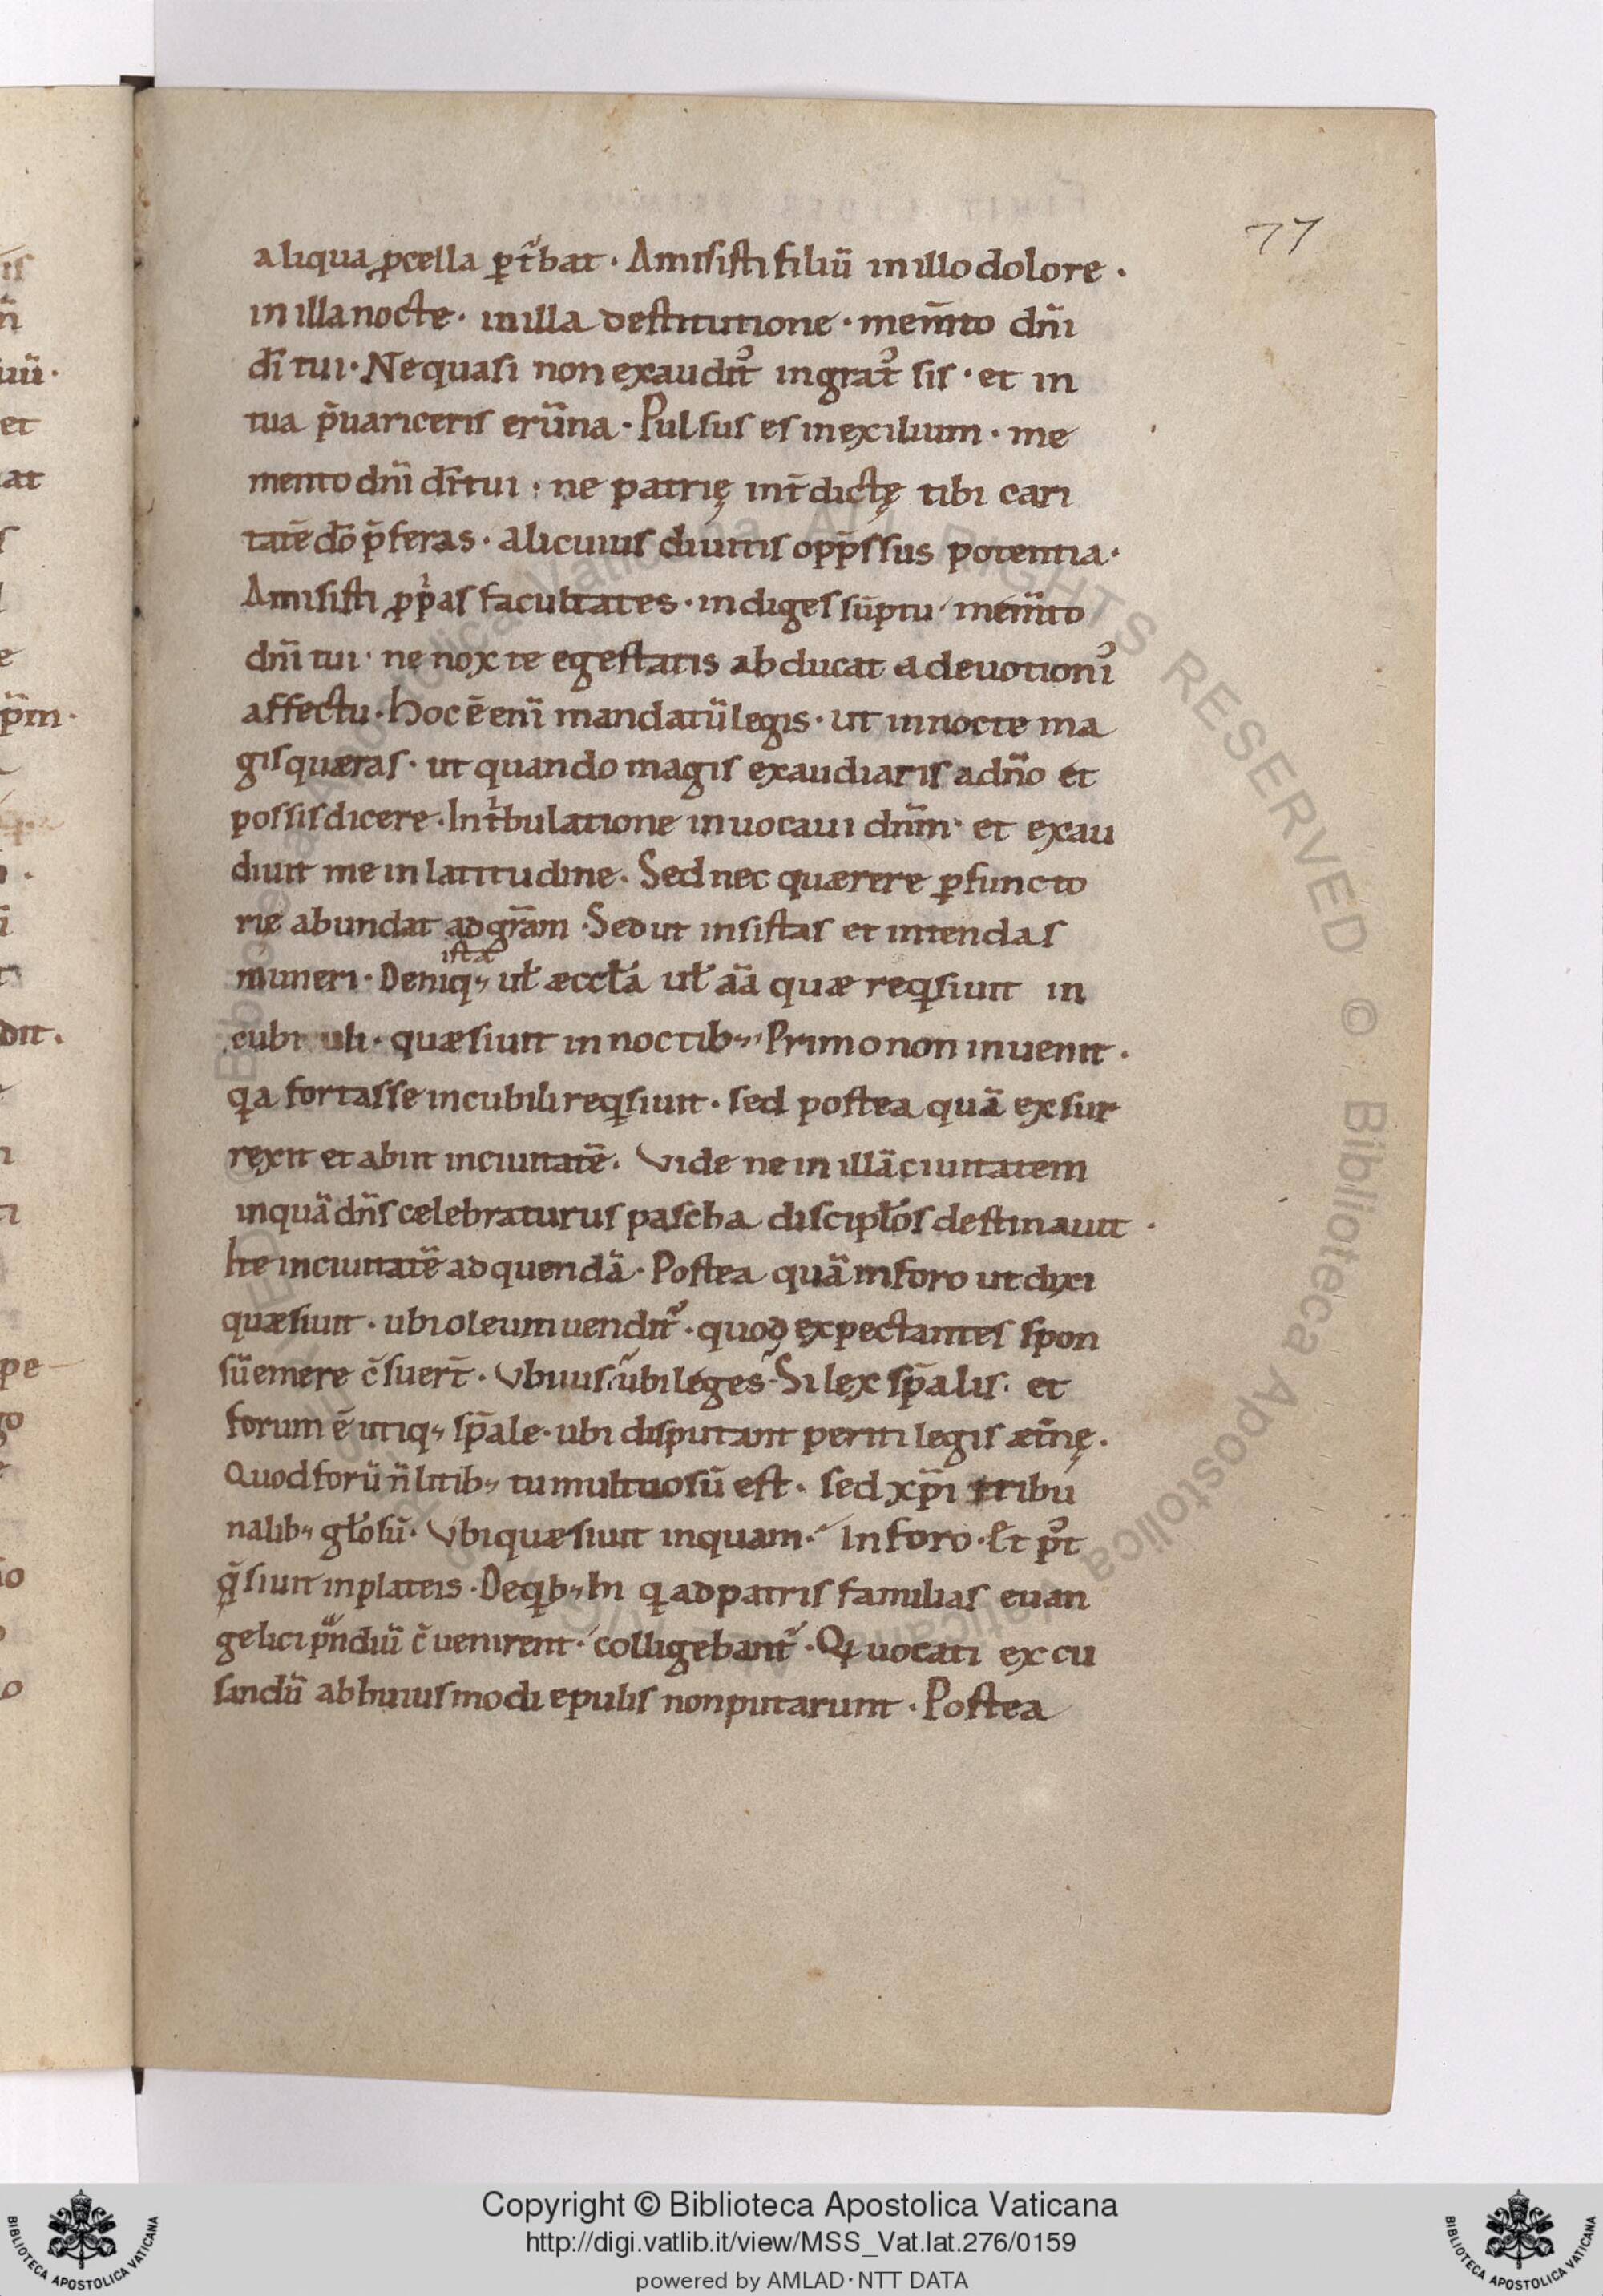 77
aliqua ꝓcella ꝑt᷑bat · Amisisti filiū in illo dolore ·
in illa nocte · in illa destitutione · mem̄to dn̄i
di᷑ tui · Ne quasi non exaudit᷒ ingrat᷒ sis · et in
tua p̄uariceris erūna · Pulsus es in exilium · me
mento dn̄i di᷑ tui · ne patrię int̄dictę tibi cari
tatē dō p̄feras · alicuius diuitis opp̄ssus potentia ·
Amisisti ꝓpͥas facultates · indiges sūptu · mem̄to
dn̄i tui · ne nox te egestatis abducat a deuotionꝰ
affectu · Hoc ē eni᷑ mandatū legis · ut in nocte ma
gis quæras · ut quando magis exaudiaris a dn̄o et
possis dicere · In tͥbulatione inuocaui dn̄m · et exau
diuit me in latitudine · Sed nec quærere ꝑfuncto
rie abundat ad grām · Sed ut insistas et intendas
ista
muneri · Deniq; ul̓ æccl̓a ul̓ aīa quæ reqͥsiuit in
cubi uli · quæsiuit in noctib; Primo non inuenit ·
qͥa fortasse in cubili reqͥsiuit · sed postea quā exsur
rexit et abiit in ciuitatē · Vide ne in illā ciuitatem
in quā dn̄s celebraturus pascha discipl̓os destinauit ·
Ite in ciuitatē ad quendā · Postea quā in foro ut dixi
quæsiuit · ubi oleum uendit᷑ · quod expectantes spon
sū emere c̄suer̄t · Vbi ius ubi leges · Si lex sp̄alis · et
forum ē utiq; sp̄ale · ubi disputant periti legis æt̄nę ·
Quod forū n̄ litib; tumultuosū est · sed xp̄i tribu
nalib; gl̓osū · Vbi quæsiuit inquam · In foro · Et p᷒t
q̄siuit in plateis · De qͥb; hi qͥ ad patris familias euan
gelici pͣndiū c̄uenirent · colligebant᷑ · Qͥ uocati excu
sandū ab huiusmodi epulis non putarunt · Postea
Copyright © Biblioteca Apostolica Vaticana
http://digi.vatlib.it/view/MSS_Vat.lat.276/0159
powered by AMLAD·NTT DATA